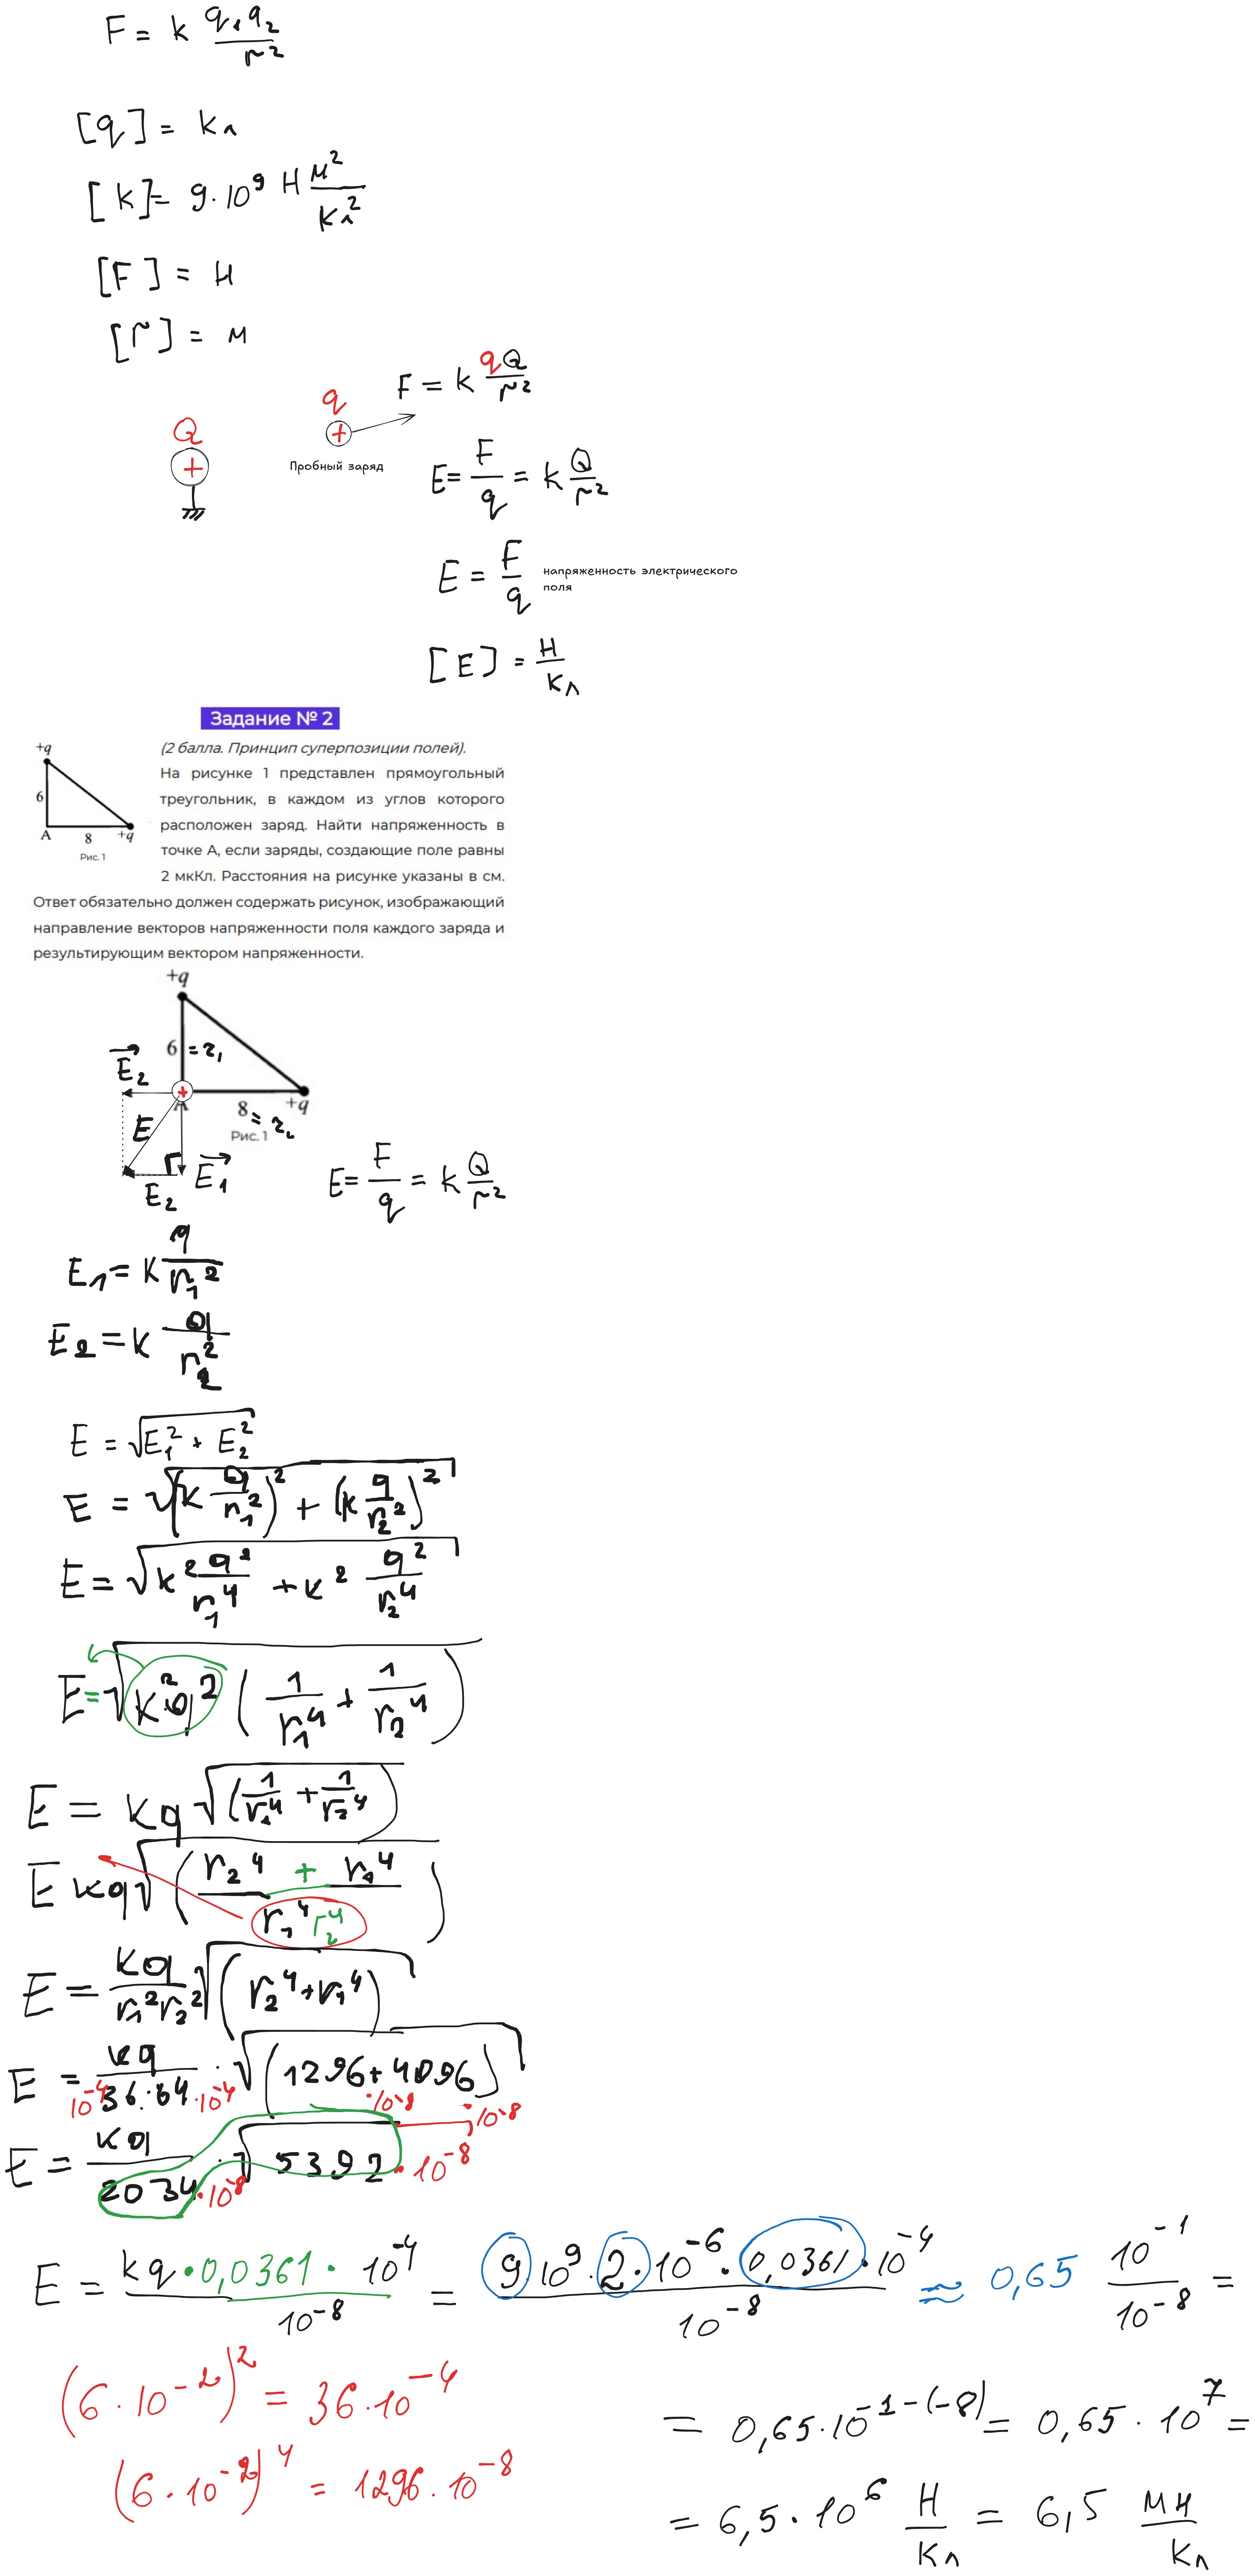 F = k q₁q₂/r²
[q] = Кл
[k] = 9·10⁹ Н м²/Кл²
[F] = Н
[r] = м
F = k qQ/r²
q
+
Q
+
Пробный заряд
E = F/q = k Q/r²
E = F/q напряженность электрического
поля
[E] = Н/Кл
Задание № 2
(2 балла. Принцип суперпозиции полей).
На рисунке 1 представлен прямоугольный
треугольник, в каждом из углов которого
расположен заряд. Найти напряженность в
точке А, если заряды, создающие поле равны
2 мкКл. Расстояния на рисунке указаны в см.
Ответ обязательно должен содержать рисунок, изображающий
направление векторов напряженности поля каждого заряда и
результирующим вектором напряженности.
+q
6
A 8 +q
Рис. 1
+q
6 = r₁
E₂
+
A 8 = r₂ +q
Рис. 1
E
E₁
E₂
E = F/q = k Q/r²
E₁ = k q/r₁²
E₂ = k q/r₂²
E = √(E₁² + E₂²)
E = √((k q/r₁²)² + (k q/r₂²)²)
E = √(k² q²/r₁⁴ + k² q²/r₂⁴)
E = √(k²q² (1/r₁⁴ + 1/r₂⁴))
E = kq √(1/r₁⁴ + 1/r₂⁴)
E kq √((r₂⁴ + r₁⁴)/(r₁⁴ r₂⁴))
E = kq/(r₁² r₂²) √(r₂⁴ + r₁⁴)
E = kq/(10⁻⁴ 36·64 ·10⁻⁴) · √(1296 ·10⁻⁸ + 4096 ·10⁻⁸)
E = kq/(2034 ·10⁻⁸) · √(5392 ·10⁻⁸)
E = kq · 0,0361 · 10⁻⁴/10⁻⁸ = 9 10⁹ · 2 · 10⁻⁶ · 0,0361 · 10⁻⁴/10⁻⁸ ≈ 0,65 10⁻¹/10⁻⁸ =
(6 · 10⁻²)² = 36 · 10⁻⁴
= 0,65 · 10⁻¹⁻⁽⁻⁸⁾ = 0,65 · 10⁷ =
(6 · 10⁻²)⁴ = 1296 · 10⁻⁸
= 6,5 · 10⁶ Н/Кл = 6,5 МН/Кл